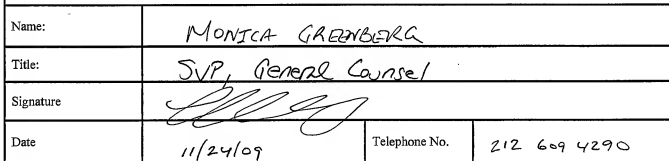 Name: MONICA GREENBERG
Title: SVP, General Counsel
Signature
Date 11/24/09 Telephone No. 212 609 4290